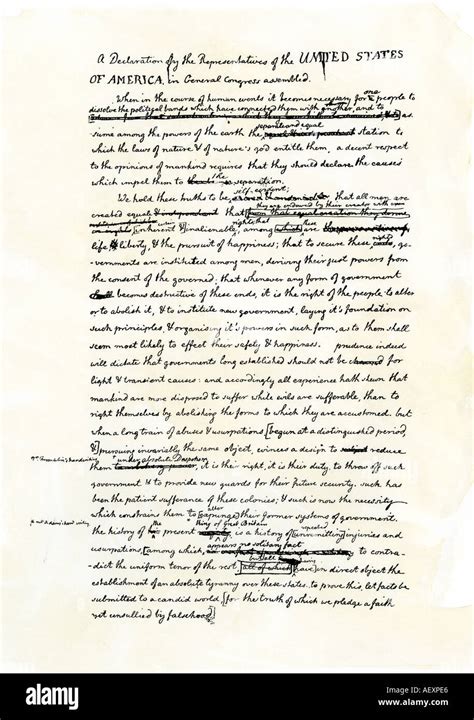 A Declaration by the Representatives of the UNITED STATES
OF AMERICA, in General Congress assembled.
When in the course of human events it becomes necessary for one people to
dissolve the political bands which have connected them with another, and to as-
-sume among the powers of the earth the separate and equal station to
which the laws of nature & of nature's god entitle them, a decent respect
to the opinions of mankind requires that they should declare the causes
which impel them to the separation.
We hold these truths to be self-evident; that all men are
created equal; that they are endowed by their creator with
inherent & inalienable rights; that among these are
life, liberty, & the pursuit of happiness; that to secure these rights, go-
-vernments are instituted among men, deriving their just powers from
the consent of the governed; that whenever any form of government
becomes destructive of these ends, it is the right of the people to alter
or to abolish it, & to institute new government, laying it's foundation on
such principles, & organising it's powers in such form, as to them shall
seem most likely to effect their safety & happiness. prudence indeed
will dictate that governments long established should not be changed for
light & transient causes: and accordingly all experience hath shewn that
mankind are more disposed to suffer while evils are sufferable, than to
right themselves by abolishing the forms to which they are accustomed. but
when a long train of abuses & usurpations [begun at a distinguished period,
& pursuing invariably the same object, evinces a design to reduce
them under absolute Despotism, it is their right, it is their duty, to throw off such
government & to provide new guards for their future security. such has
been the patient sufferance of these colonies; & such is now the necessity
which constrains them to [expunge alter their former systems of government.
the history of the present king of Great Britain is a history of [unremitting repeated injuries and
usurpations, [among which appears no solitary fact to contra-
-dict the uniform tenor of the rest all of which have in direct object the
establishment of an absolute tyranny over these states. to prove this, let facts be
submitted to a candid world, [for the truth of which we pledge a faith
yet unsullied by falsehood]
alamy
Image ID: AEXPE6
www.alamy.com